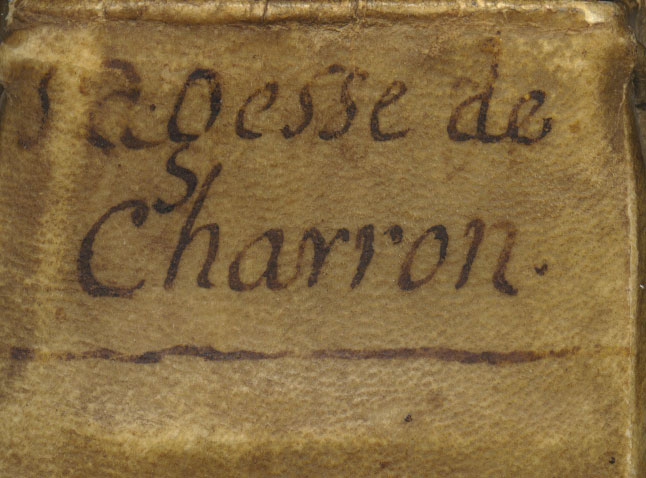 sagesse de
Charron.